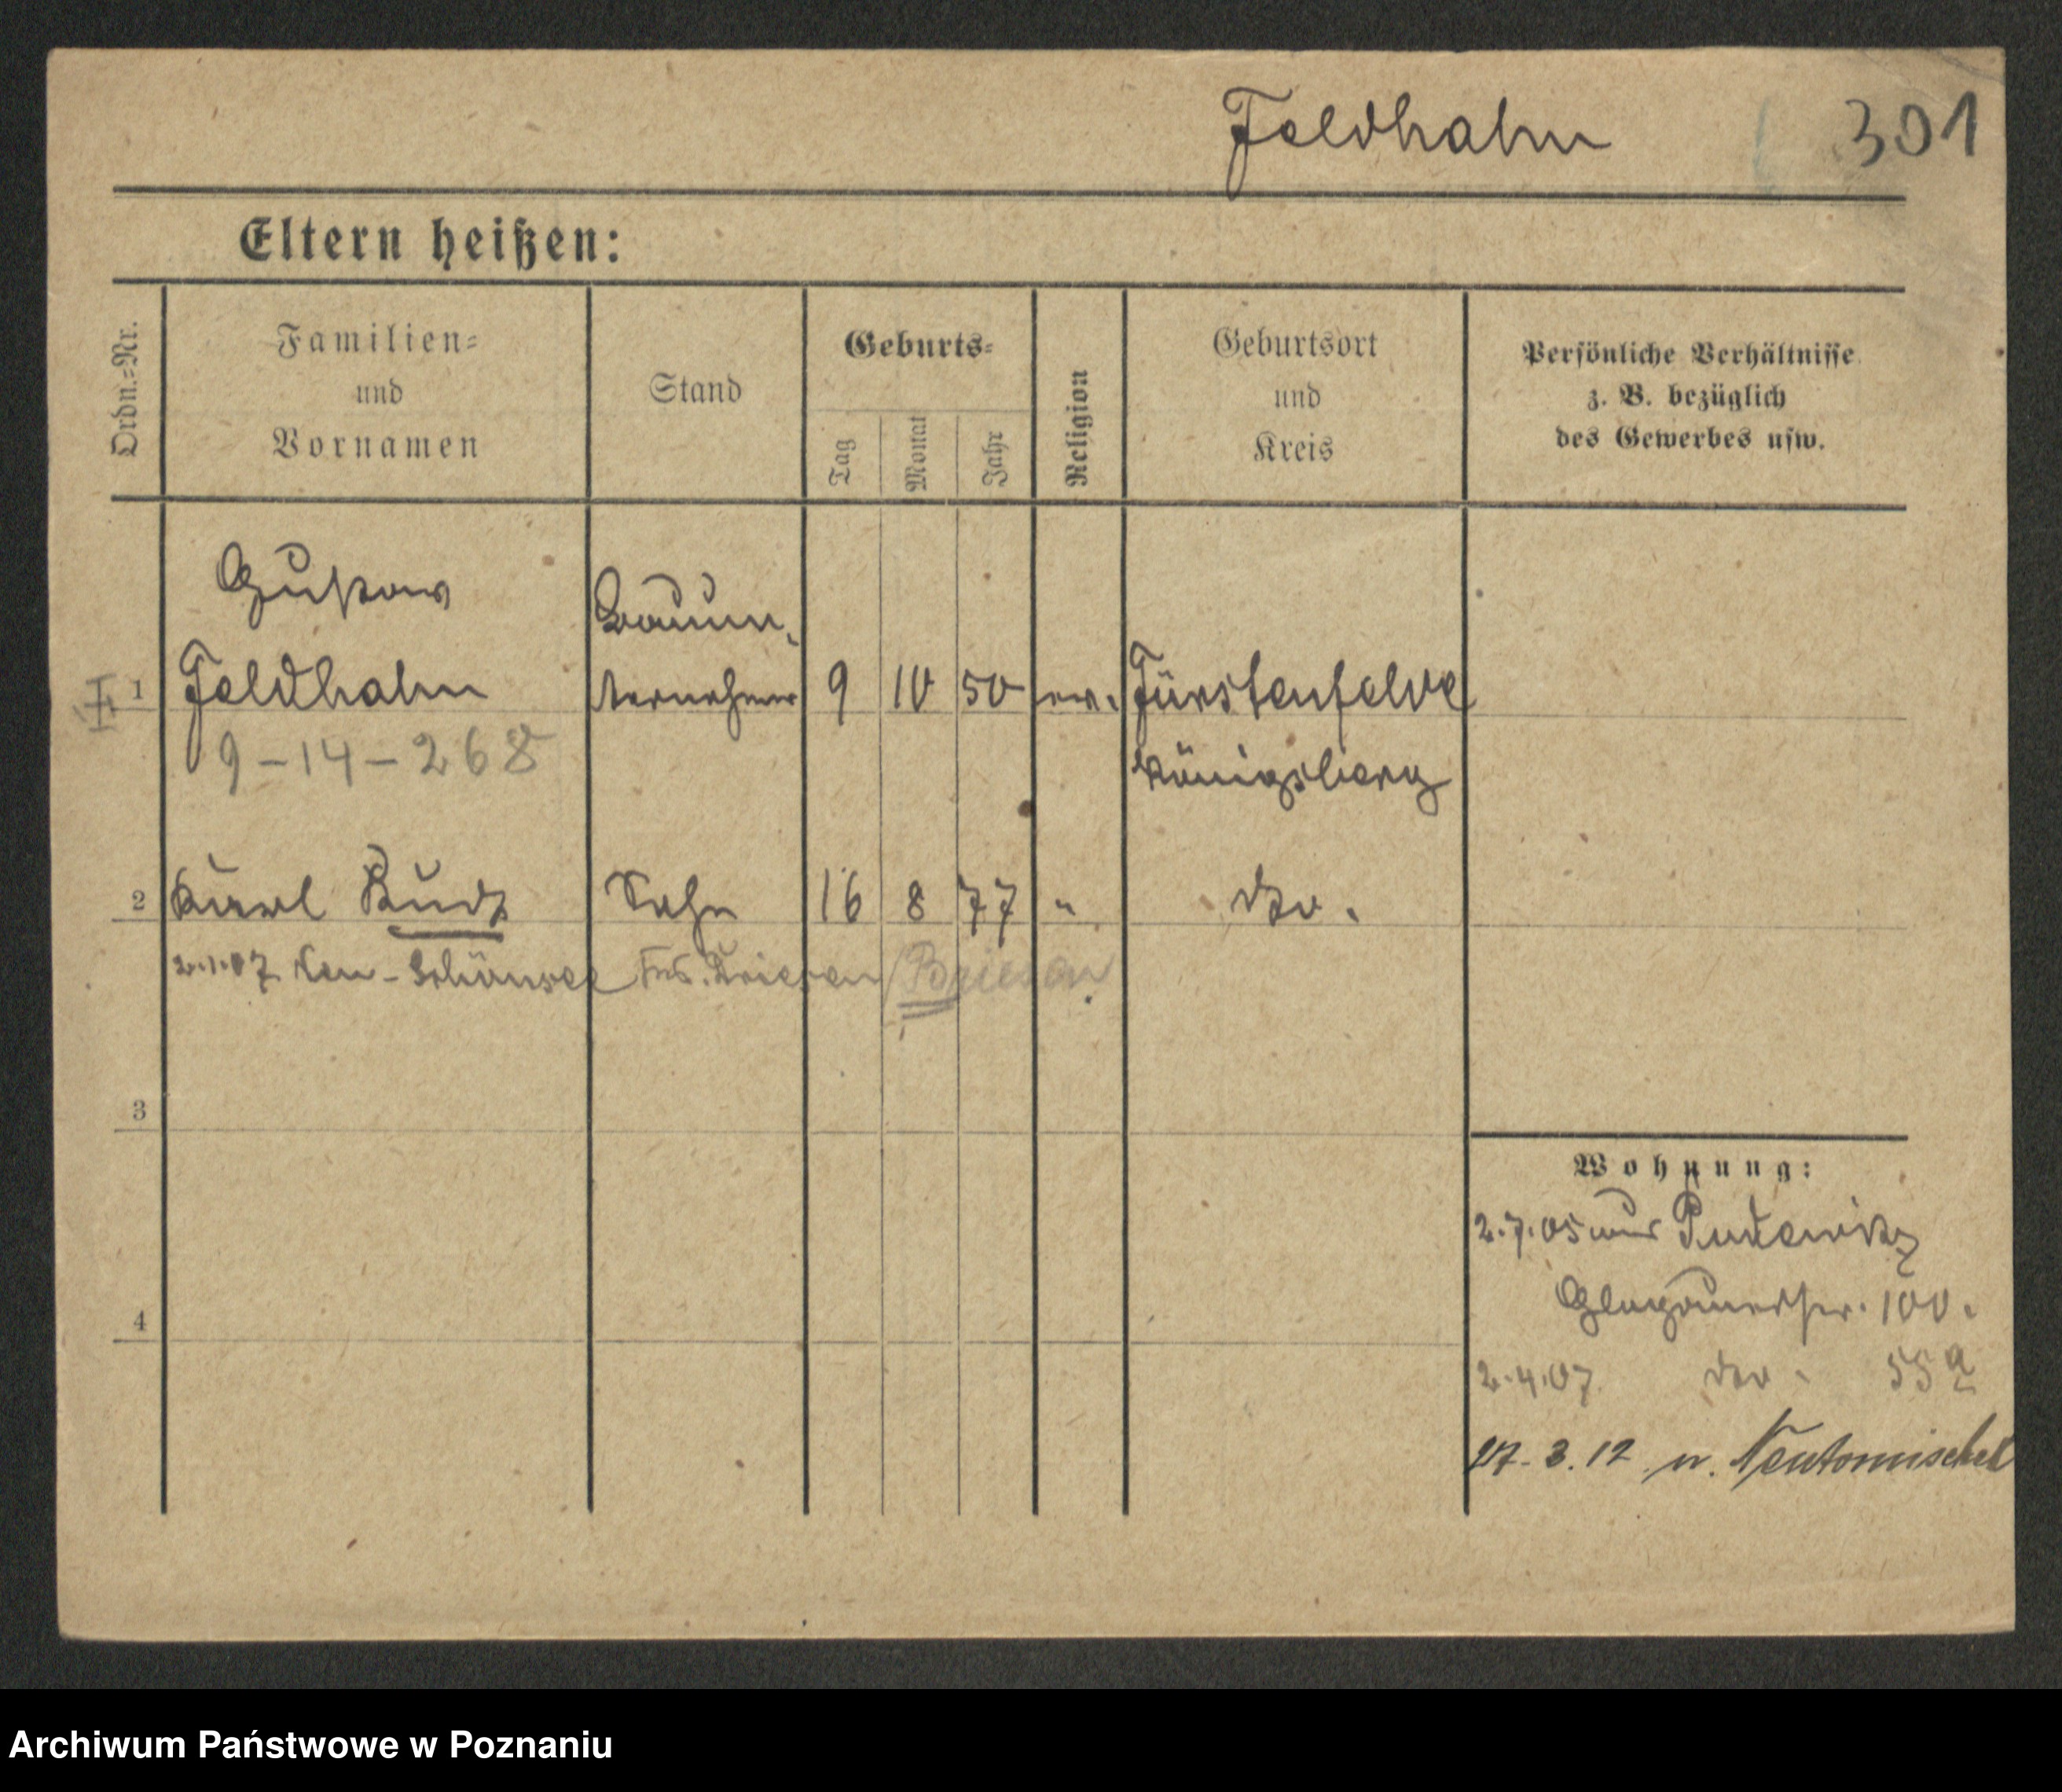 Feldhahn 301
Eltern heißen:
Ordn.=Nr.
Familien=
und
Vornamen
Stand
Geburts=
Tag
Monat
Jahr
Religion
Geburtsort
und
Kreis
Persönliche Verhältnisse
z. B. bezüglich
des Gewerbes usw.
Gustav
Bauun-
1 Feldhahn ternehmer 9 10 50 ev. Fürstenfelde
9-14-268
Königsberg
2 Karl Sohn 16 8 77 " do.
2.1.07 Schönsee Briesen Briesen
3
4
Wohnung:
2.7.05 aus Pudewitz
Glogauerstr. 100.
2.4.07 do. 55a
27.3.12 n. Neutomischel
Archiwum Państwowe w Poznaniu